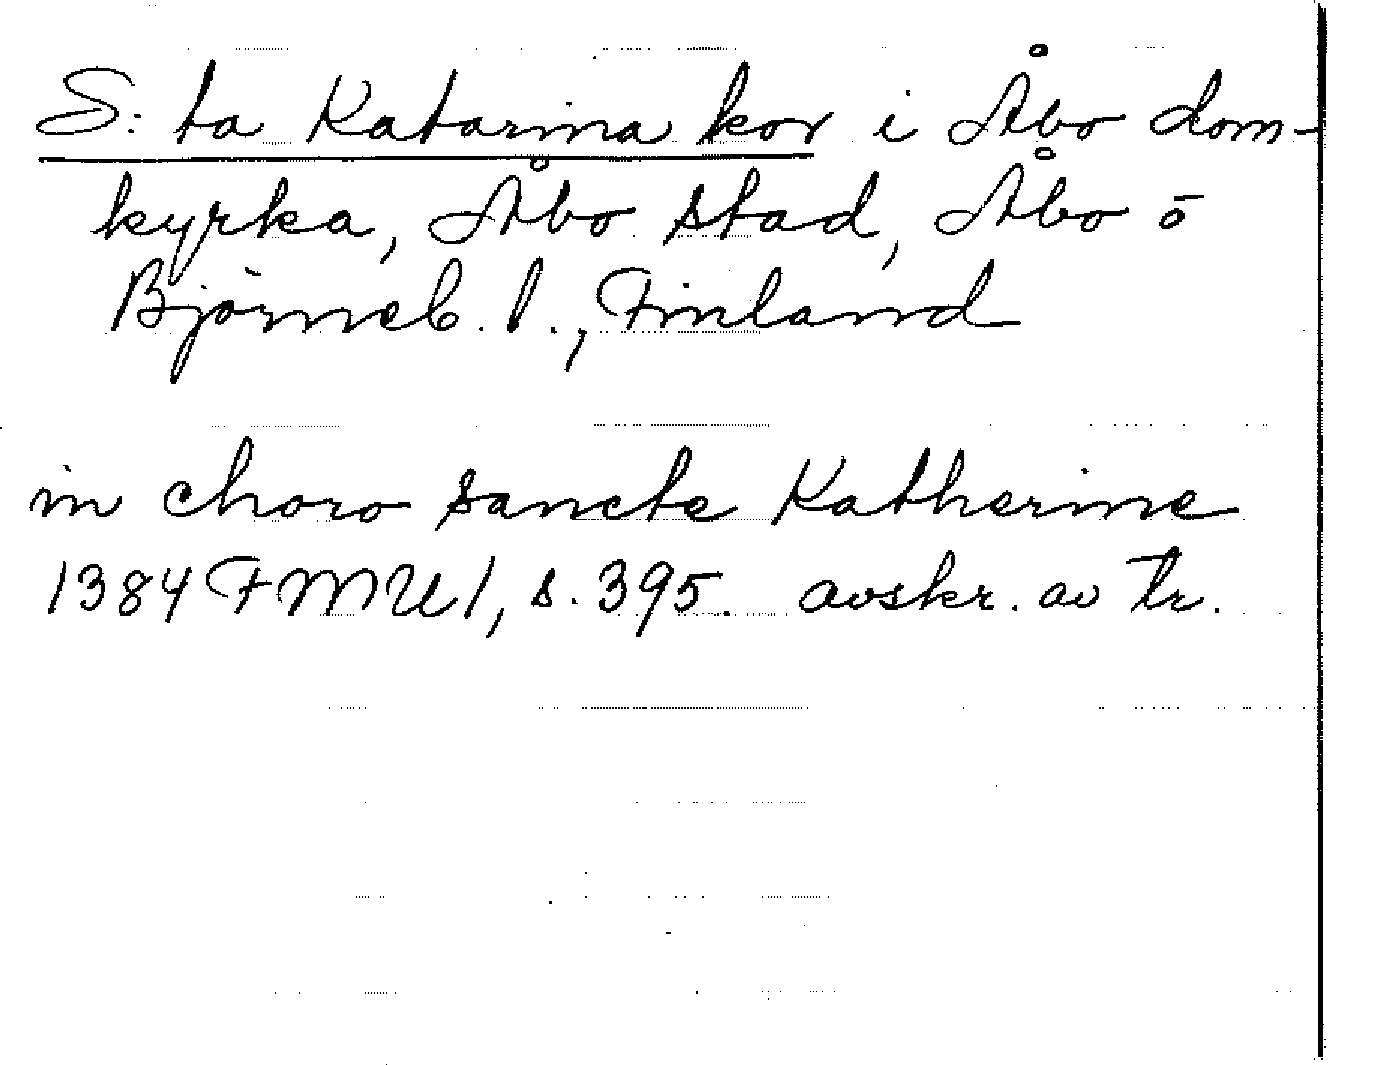 S:ta Katarina kor i Åbo dom-
kyrka, Åbo stad, Åbo o
Björneb. l., Finland
in choro sancte Katherine
1384 FMU 1, s. 395. avskr. av tr.